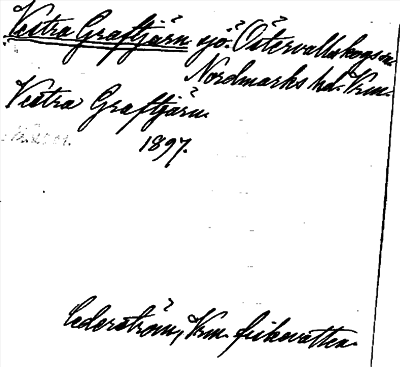 Vestra Graftjärn sjö. Östervallskogs sn
Nordmarks hd. Vrm.
Vestra Graftjärn.
1897.
Cederström, Vrm. fiskevatten.